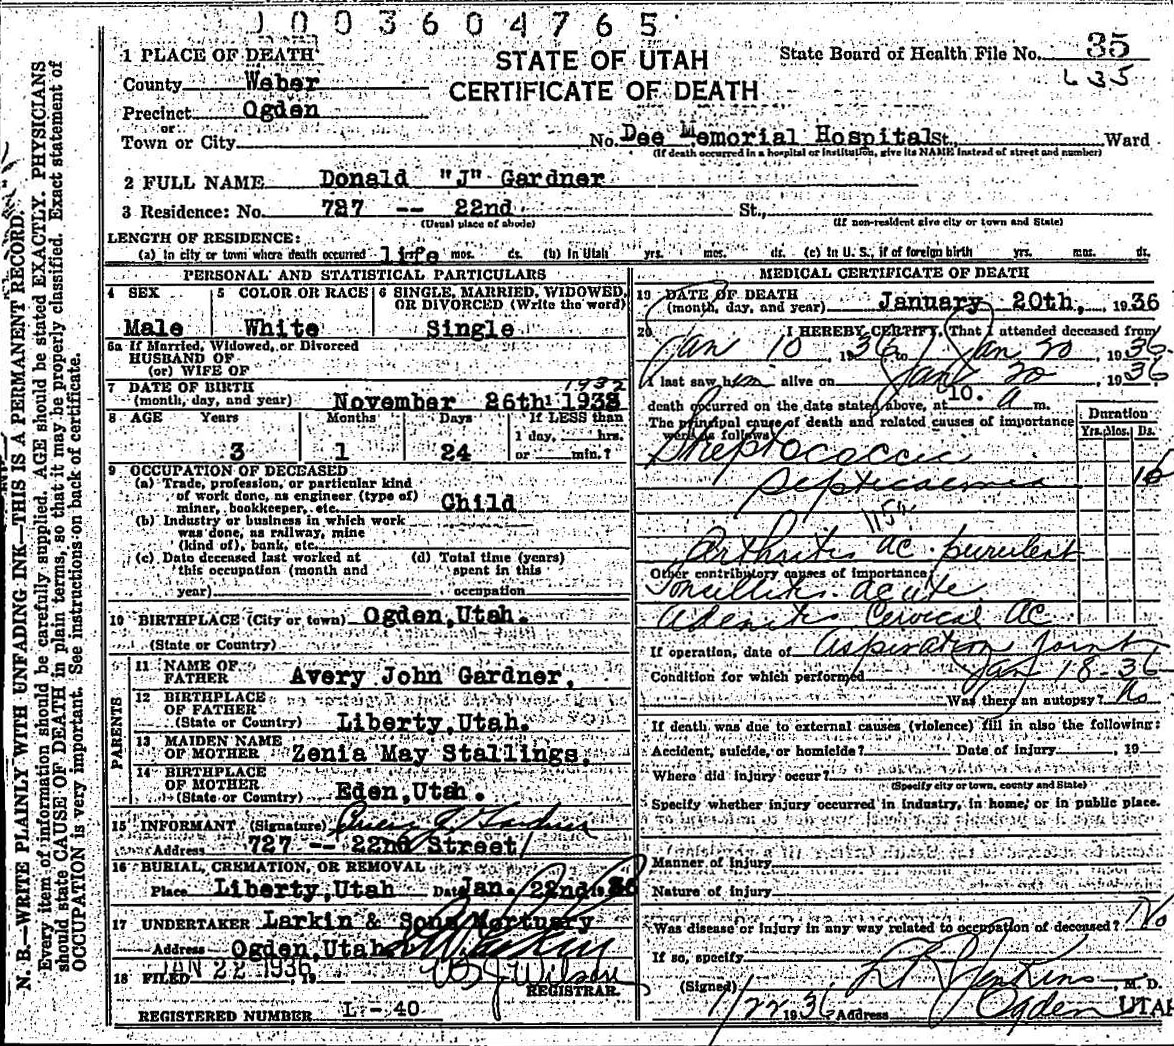 1003604765
1 PLACE OF DEATH
STATE OF UTAH
CERTIFICATE OF DEATH
State Board of Health File No. 35
635
County Weber
Precinct Ogden
or
Town or City No. Dee Memorial Hospital St., Ward
(If death occurred in a hospital or institution, give its NAME instead of street and number)
2 FULL NAME Donald "J" Gardner
3 Residence: No. 727 -- 22nd St.,
(Usual place of abode) (If non-resident give city or town and State)
LENGTH OF RESIDENCE:
(a) In city or town where death occurred life mos. ds. (b) In Utah yrs. mos. ds. (c) In U. S., if of foreign birth yrs. mos. ds.
PERSONAL AND STATISTICAL PARTICULARS
4 SEX
Male
5 COLOR OR RACE
White
6 SINGLE, MARRIED, WIDOWED,
OR DIVORCED (Write the word)
Single
6a If Married, Widowed, or Divorced
HUSBAND OF
(or) WIFE OF
7 DATE OF BIRTH 1932
(month, day, and year) November 26th 1932
8 AGE Years Months Days If LESS than
1 day, hrs.
3 1 24 or min.?
9 OCCUPATION OF DECEASED
(a) Trade, profession, or particular kind
of work done, as engineer (type of)
miner, bookkeeper, etc. Child
(b) Industry or business in which work
was done, as railway, mine
(kind of), bank, etc.
(c) Date deceased last worked at
this occupation (month and
year)
(d) Total time (years)
spent in this
occupation
10 BIRTHPLACE (City or town) Ogden, Utah.
(State or Country)
PARENTS
11 NAME OF
FATHER Avery John Gardner,
12 BIRTHPLACE
OF FATHER
(State or Country) Liberty, Utah.
13 MAIDEN NAME
OF MOTHER Zenia May Stallings,
14 BIRTHPLACE
OF MOTHER
(State or Country) Eden, Utah.
15 INFORMANT (Signature) Avery J. Gardner
Address 727 -- 22nd Street
16 BURIAL, CREMATION, OR REMOVAL
Place Liberty, Utah Date Jan. 22nd 1936
17 UNDERTAKER Larkin & Sons Mortuary
Address Ogden, Utah
18 FILED JAN 22 1936, 19 Wilson
REGISTRAR.
REGISTERED NUMBER L - 40
MEDICAL CERTIFICATE OF DEATH
19 DATE OF DEATH
(month, day, and year) January 20th, 1936
20 I HEREBY CERTIFY, That I attended deceased from
Jan 10, 1936 to Jan 20, 1936
I last saw him alive on Jan 20, 1936
death occurred on the date stated above, at 10. a m.
The principal cause of death and related causes of importance
were as follows:
Duration
Yrs. Mos. Ds.
Streptococcic
Septicaemia 10
115a
Arthritis ac. purulent
Other contributory causes of importance
Tonsillitis. acute
Adenitis Cervical AC
If operation, date of Aspiration Joint
Condition for which performed Jan 18-36
Was there an autopsy? No
If death was due to external causes (violence) fill in also the following:
Accident, suicide, or homicide? Date of injury , 19
Where did injury occur?
(Specify city or town, county and State)
Specify whether injury occurred in industry, in home, or in public place.
Manner of Injury
Nature of Injury
Was disease or injury in any way related to occupation of deceased? No
If so, specify
(Signed) Jenkins, M. D.
1/22 1936 Address Ogden UTAH
N. B.—WRITE PLAINLY WITH UNFADING INK—THIS IS A PERMANENT RECORD.
Every item of information should be carefully supplied. AGE should be stated EXACTLY. PHYSICIANS
should state CAUSE OF DEATH in plain terms, so that it may be properly classified. Exact statement of
OCCUPATION is very important. See instructions on back of certificate.